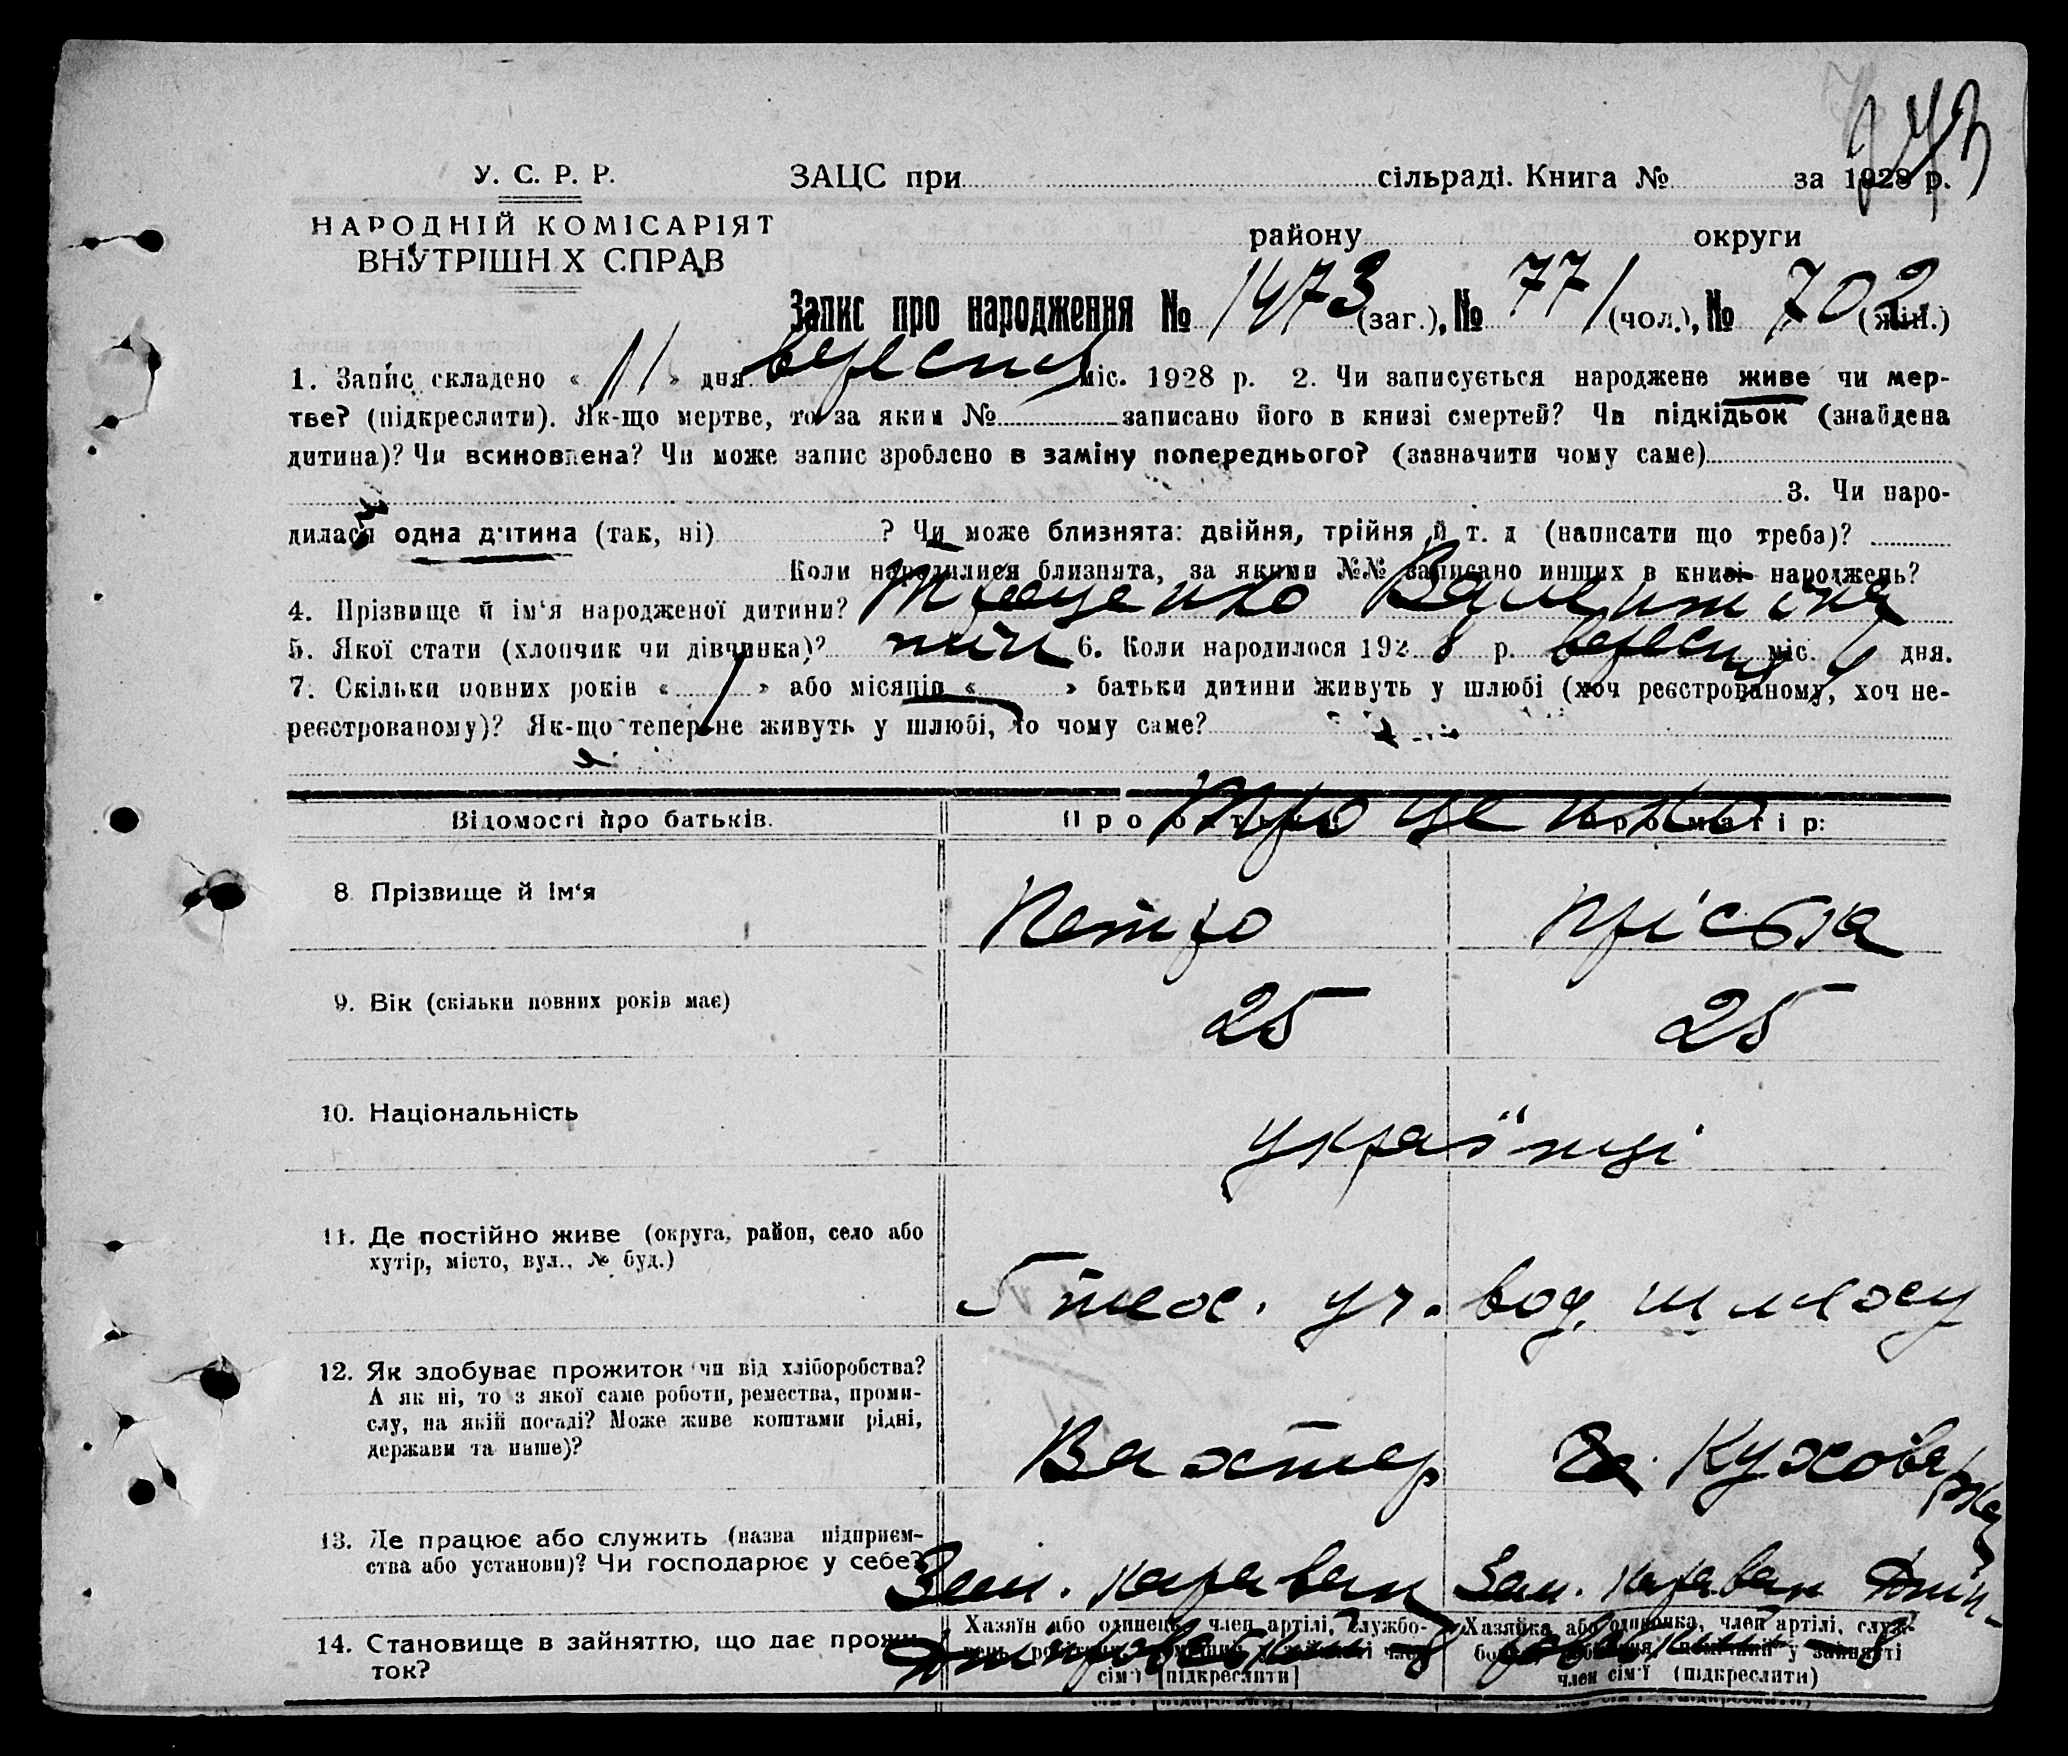 743
У. С. Р. Р.
ЗАЦС при сільраді. Книга № за 1928 р.
НАРОДНІЙ КОМІСАРІЯТ
ВНУТРІШН Х СПРАВ
району округи
Запис про народження № 1473 (заг.), № 771 (чол.), № 702 (жін.)
1. Запис складено « 11 » дня вересня міс. 1928 р. 2. Чи записується народжене живе чи мер-
тве? (підкреслити). Як-що мертве, то за яким № записано його в книзі смертей? Чи підкідьок (знайдена
дитина)? Чи всиновлена? Чи може запис зроблено в заміну попереднього? (зазначити чому саме)
3. Чи наро-
дилася одна дитина (так, ні) ? Чи може близнята: двійня, трійня й т. д (написати що треба)?
Коли народилися близнята, за якими №№ записано инших в книзі народжень?
4. Прізвище й ім‘я народженої дитини? Троценко Валентіна
5. Якої стати (хлопчик чи дівчинка)? 6. Коли народилося 1928 р. вересня міс. 4 дня.
7. Скільки повних років « 1 » або місяців « » батьки дитини живуть у шлюбі (хоч реєстрованому, хоч не-
реєстрованому)? Як-що тепер не живуть у шлюбі, то чому саме?
Троценко
Відомості про батьків. Про батька: Про матір:
8. Прізвище й ім‘я Петро Прісько
9. Вік (скільки повних років має) 25 25
10. Національність українці
11. Де постійно живе (округа, район, село або
хутір, місто, вул., № буд.)
5 тех. уч. вод. шляху
12. Як здобуває прожиток чи від хліборобства?
А як ні, то з якої саме роботи, ремества, проми-
слу, на якій посаді? Може живе коштами рідні,
держави та инше)?
Вахтер Куховарка
13. Де працює або служить (назва підприєм-
ства або установи)? Чи господарює у себе?
Зем. караван Зем. караван Дніп-
14. Становище в зайняттю, що дає прожи-
ток?
Хазяїн або одинець, член артілі, службо-
сім‘ї [підкреслити]
Хазяйка або одиночка, член артілі, служ-
член сім‘ї (підкреслити)